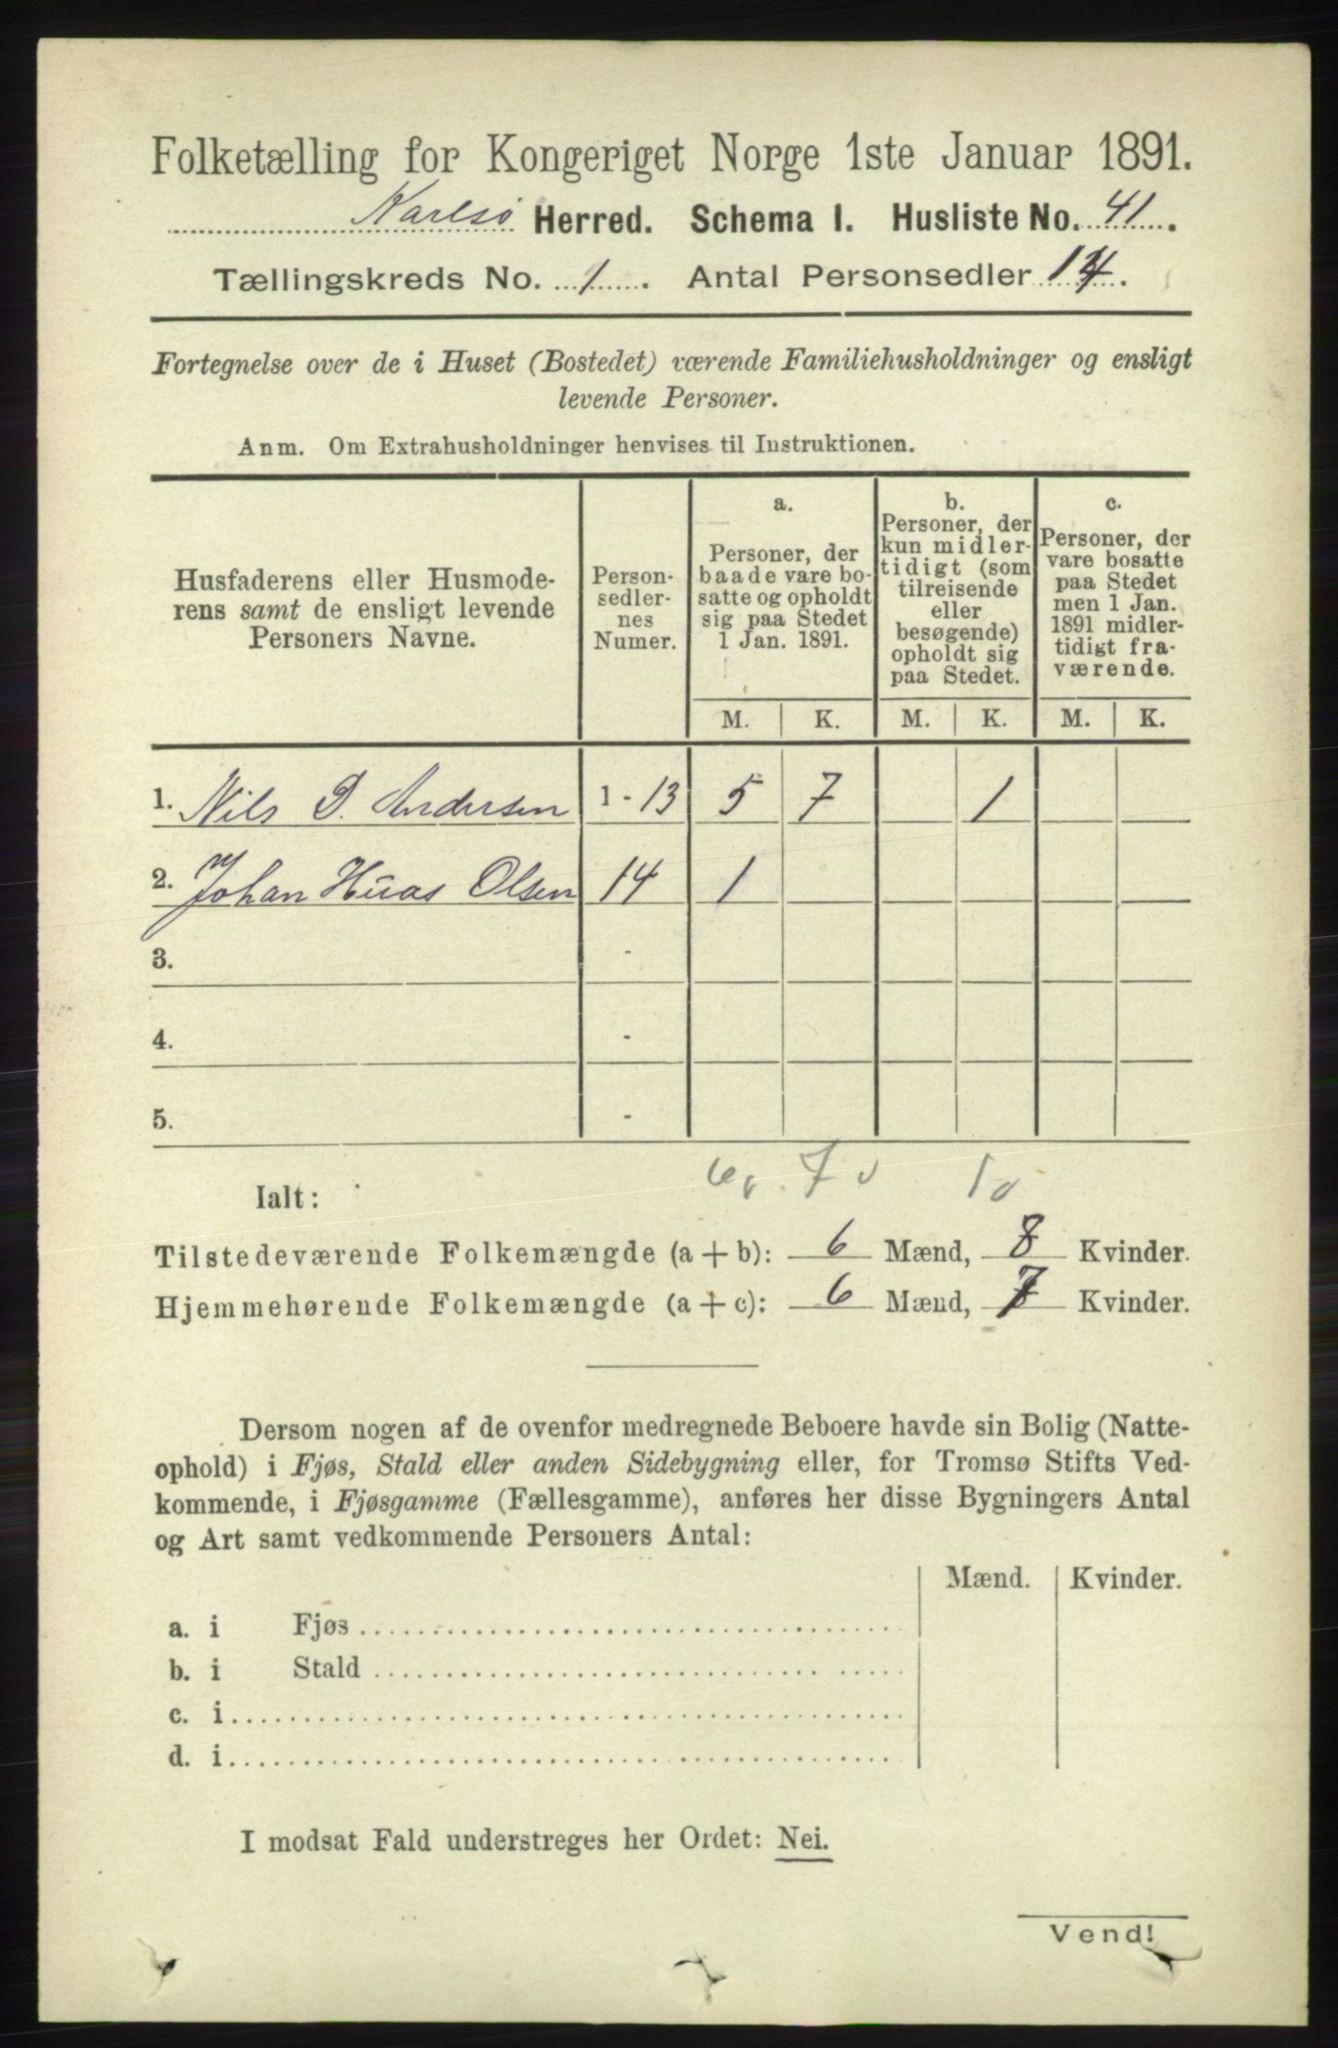 Folketælling for Kongeriget Norge 1ste Januar 1891.
Karlsø Herred. Schema I. Husliste No. 41.
Tællingskreds No. 1. Antal Personsedler 14.
Fortegnelse over de i Huset (Bostedet) værende Familiehusholdninger og ensligt
levende Personer.
Anm. Om Extrahusholdninger henvises til Instruktionen.
Husfaderens eller Husmode-
rens samt de ensligt levende
Personers Navne.
Person-
sedler-
nes
Numer.
a.
Personer, der
baade vare bo-
satte og opholdt
sig paa Stedet
1 Jan. 1891.
b.
Personer, der
kun midler-
tidigt (som
tilreisende
eller
besøgende)
opholdt sig
paa Stedet.
c.
Personer, der
vare bosatte
paa Stedet
men 1 Jan.
1891 midler-
tidigt fra-
værende.
M. K. M. K. M. K.
1. Nils D. Andersen 1-13 5 7 1
2. Johan Olsen 14 1
3. -
4. -
5. -
6 7 1
Ialt:
Tilstedeværende Folkemængde (a + b): 6 Mænd, 8 Kvinder.
Hjemmehørende Folkemængde (a + c): 6 Mænd, 7 Kvinder.
Dersom nogen af de ovenfor medregnede Beboere havde sin Bolig (Natte-
ophold) i Fjøs, Stald eller anden Sidebygning eller, for Tromsø Stifts Ved-
kommende, i Fjøsgamme (Fællesgamme), anføres her disse Bygningers Antal
og Art samt vedkommende Personers Antal:
Mænd. Kvinder.
a. i Fjøs
b. i Stald
c. i
d. i
I modsat Fald understreges her Ordet: Nei.
Vend!